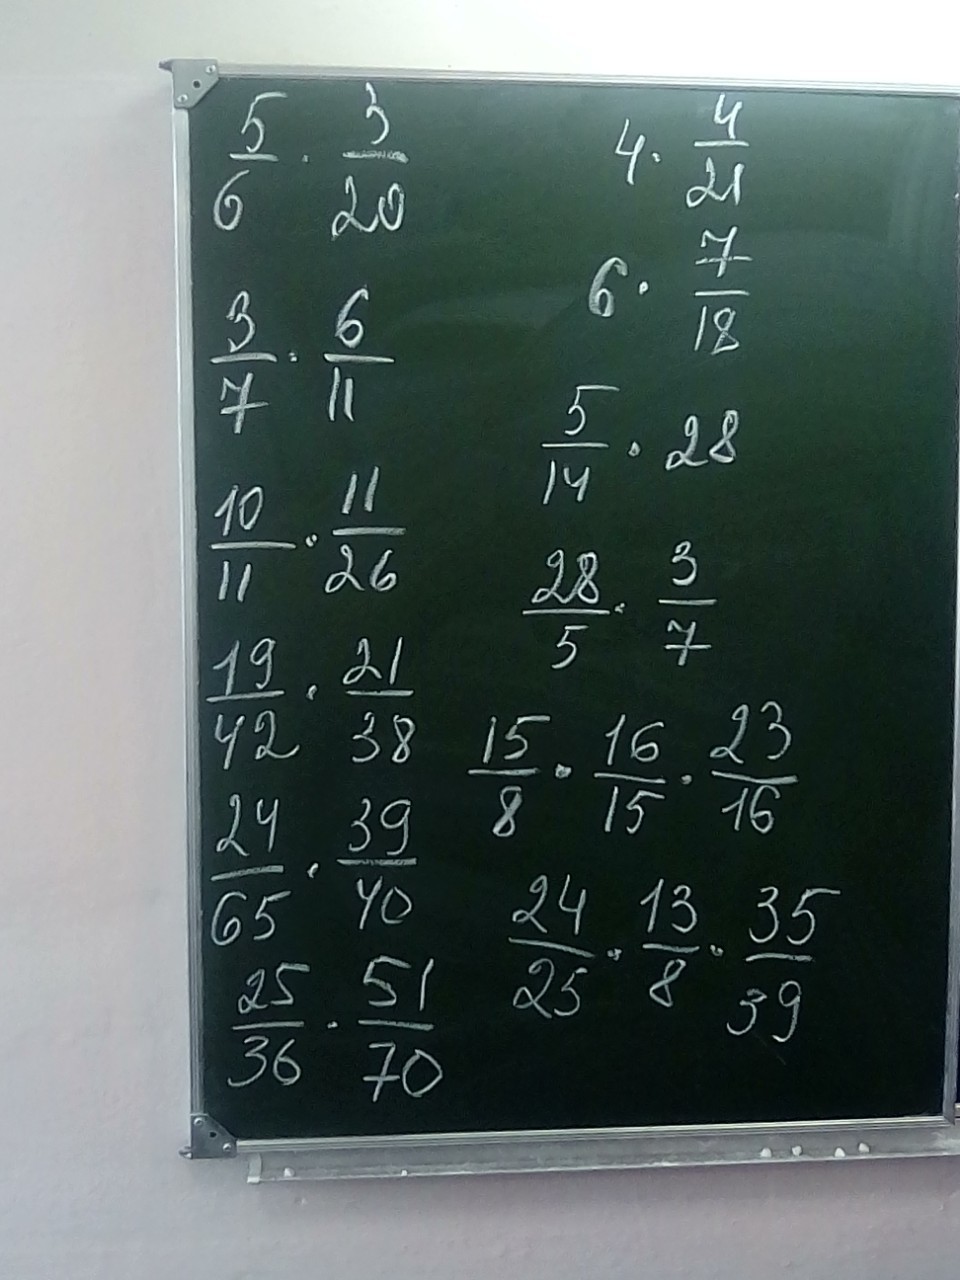 5/6 · 3/20
3/7 · 6/11
10/11 · 11/26
19/42 · 21/38
24/65 · 39/40
25/36 · 51/70
4 · 4/21
6 · 7/18
5/14 · 28
28/5 · 3/7
15/8 · 16/15 · 23/16
24/25 · 13/8 · 35/39